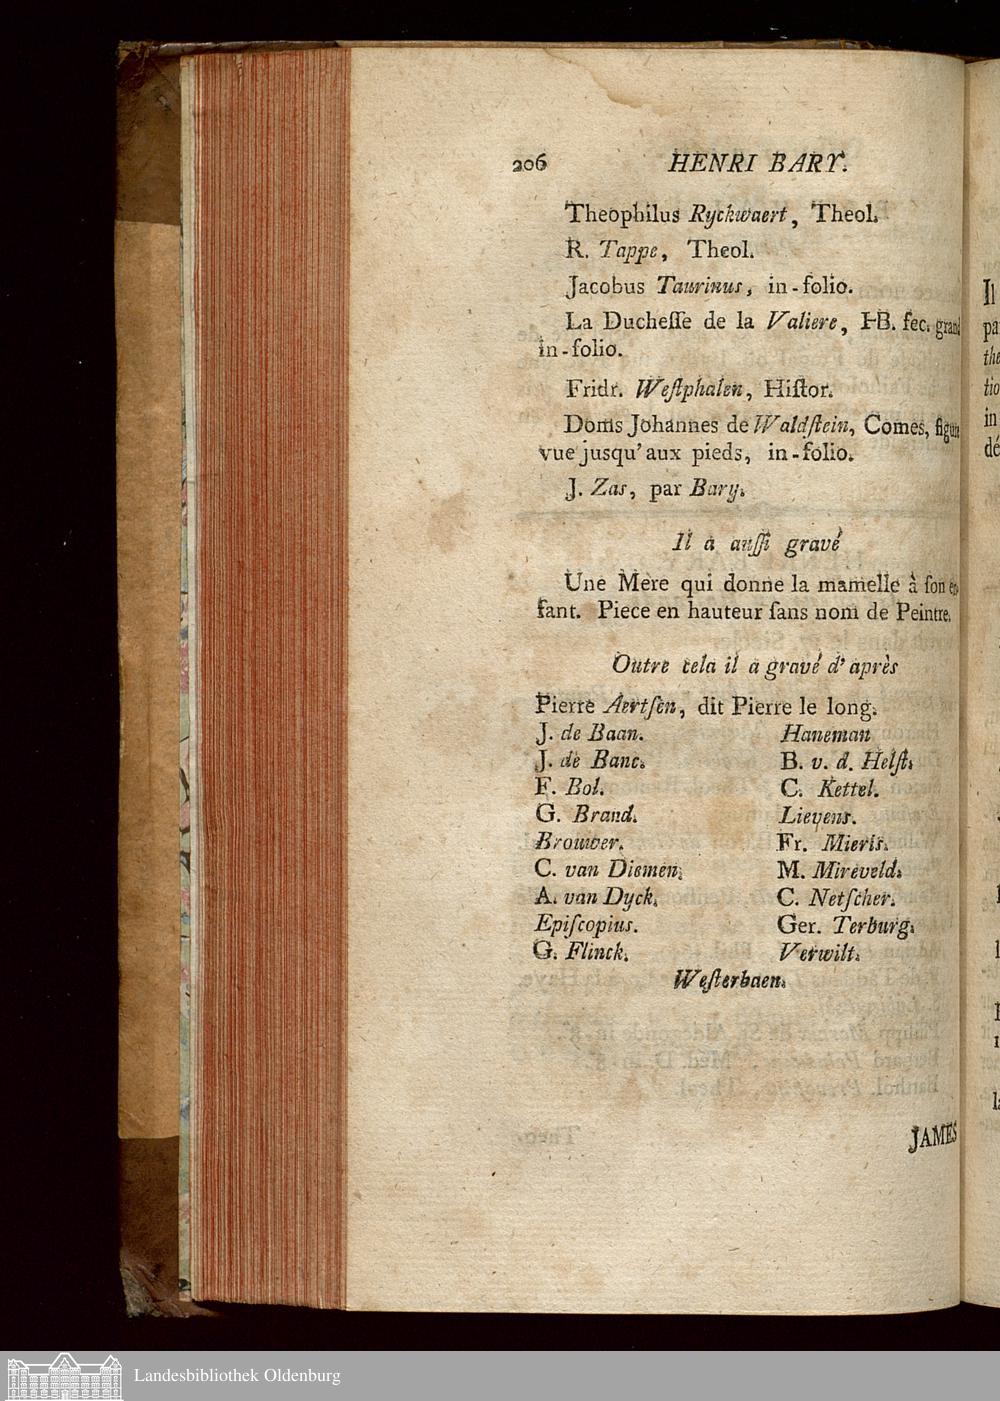 206 HENRI BARY.
Theophilus Ryckwaert, Theol.
R. Tappe, Theol.
Jacobus Taurinus, in-folio.
La Ducheſſe de la Valiere, HB. fec. grand
in-folio.
Fridr. Weſtphalen, Hiſtor.
Doms Johannes de Waldſtein, Comes, figure
vue jusqu'aux pieds, in-folio.
J. Zas, par Bary.
Il a auſſi gravé
Une Mere qui donne la mamelle à ſon en-
fant. Piece en hauteur ſans nom de Peintre.
Outre cela il a gravé d'après
Pierre Aertſen, dit Pierre le long.
J. de Baan. Haneman
J. de Banc. B. v. d. Helſt.
F. Bol. C. Kettel.
G. Brand. Lievens.
Brouwer. Fr. Mieris.
C. van Diemen. M. Mireveld.
A. van Dyck. C. Netſcher.
Epiſcopius. Ger. Terburg.
G. Flinck. Verwilt.
Weſterbaen.
JAMES
Il
pa
the
tio
in
dé
Landesbibliothek Oldenburg